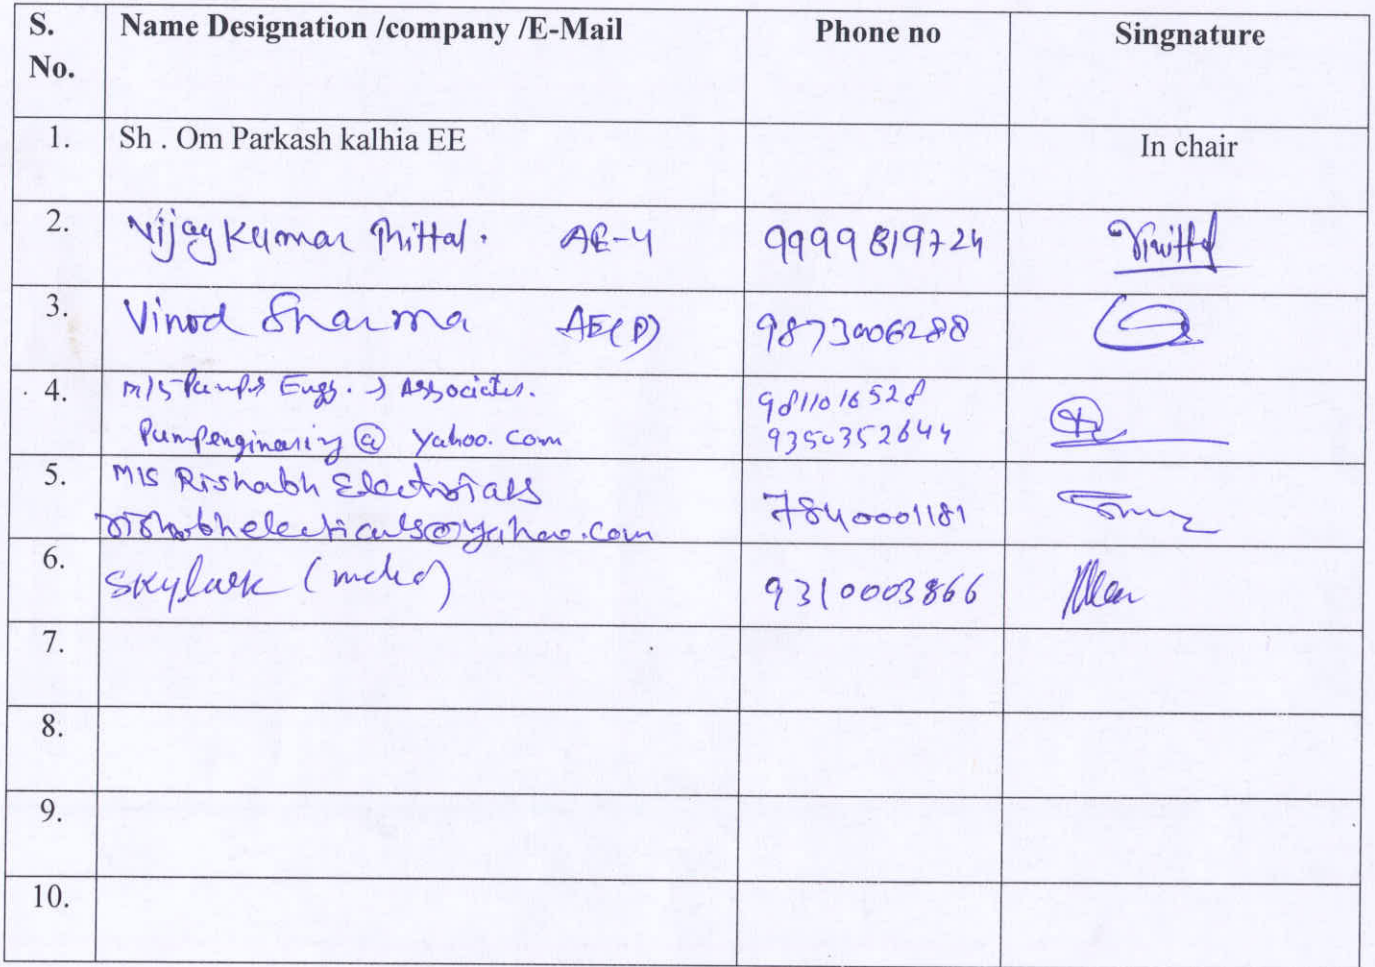 S. No. Name Designation /company /E-Mail Phone no Singnature
1. Sh . Om Parkash kalhia EE In chair
2. Vijay Kumar Mittal. AE-4 9999819724
3. Vinod Sharma AE(P) 9873006288
4. M/S Pumps Engg. Associates. 9811016528
Pumpenginariy@yahoo.com 9350352644
5. M/S Rishabh Electricals
rishabhelecticals@yahoo.com 7840001181
6. Skylark 9310003866
7.
8.
9.
10.